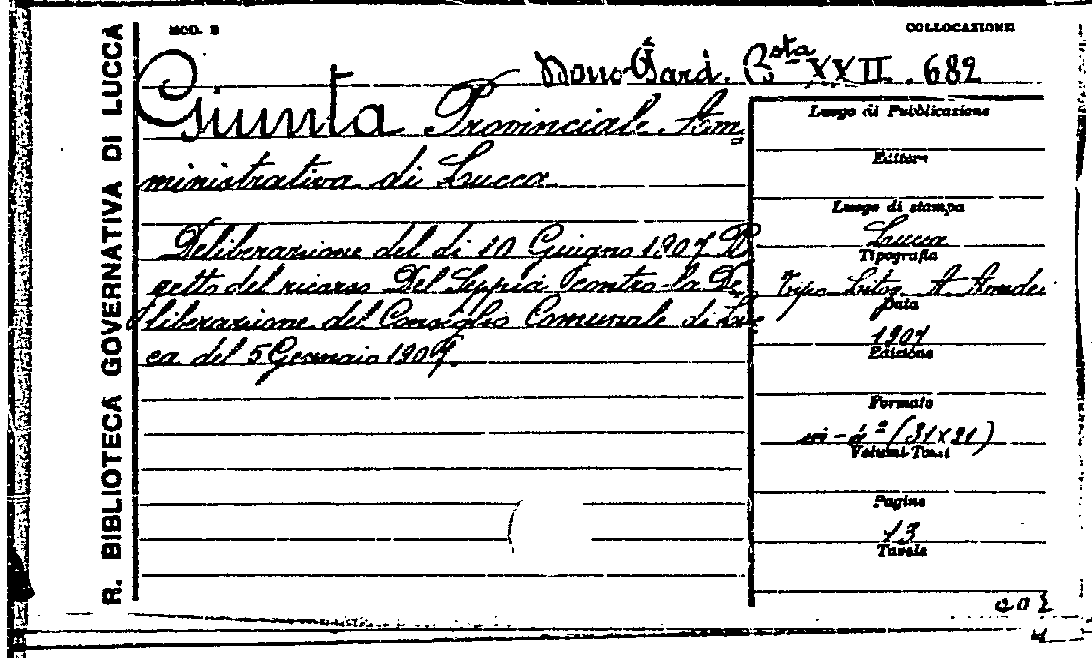 R. BIBLIOTECA GOVERNATIVA DI LUCCA
MOD. B
COLLOCAZIONE
Bsta XXII. 682
Giunta Provinciale Am
ministrativa di Lucca
Deliberazione del dì 10 Giugno 1907
getto del ricorso Del Seppia contro la De
liberazione del Consiglio Comunale di Luc
ca del 5 Gennaio 1907.
Luogo di Pubblicazione
Editore
Luogo di stampa
Lucca
Tipografia
Tipo Litog. A. Amedei
Data
1907
Edizione
Formato
in-4° (31x21)
Volumi-Tomi
Pagine
13
Tavole